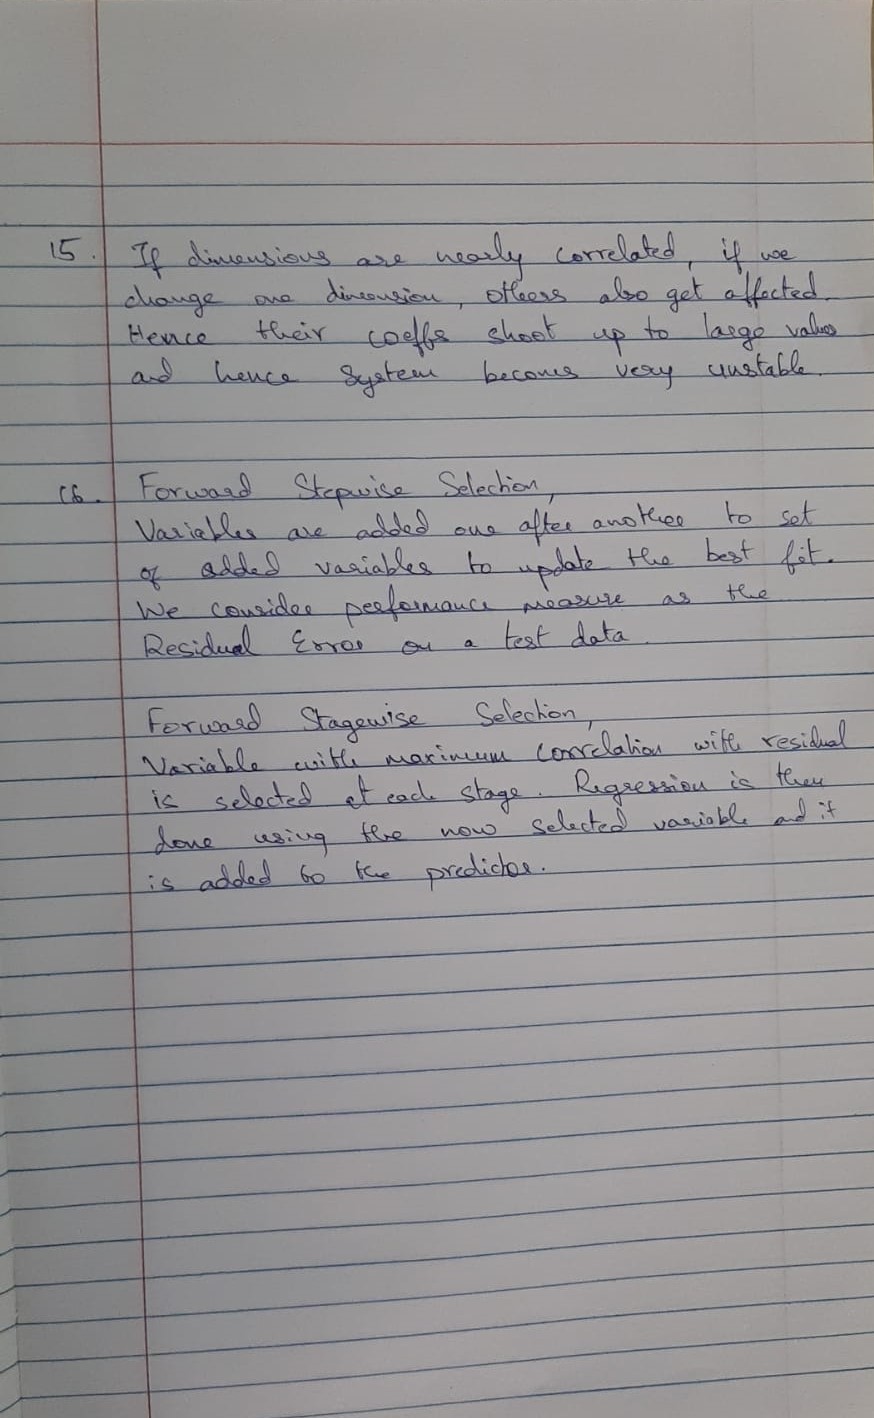 15. If dimensions are nearly correlated, if we
change one dimension, others also get affected.
Hence their coeffs shoot up to large values
and hence system becomes very unstable.
16. Forward Stepwise Selection,
Variables are added one after another to set
of added variables to update the best fit.
We consider performance measure as the
Residual Error on a test data
Forward Stagewise Selection,
Variable with maximum correlation with residual
is selected at each stage. Regression is then
done using the now selected variable and it
is added to the predictor.